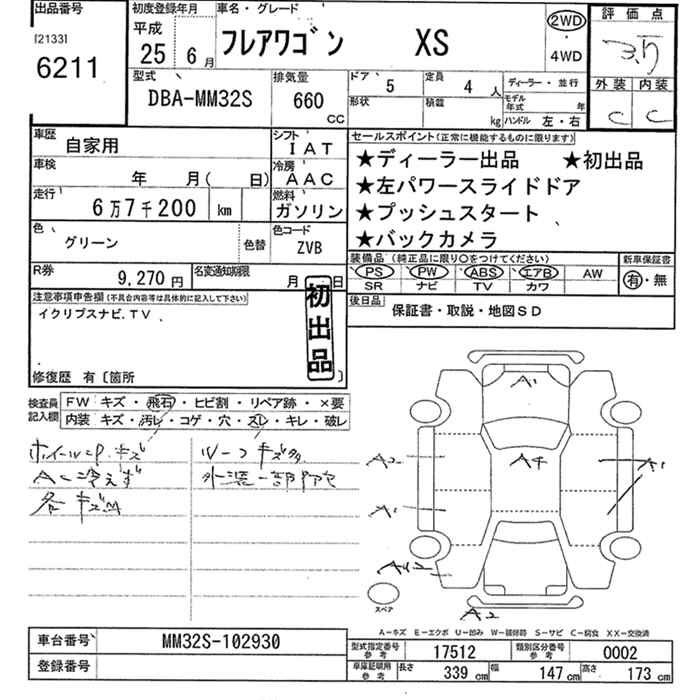 出品番号
[2133]
6211
初度登録年月
平成
25年6月
車名・グレード
フレアワゴン XS
2WD
・
4WD
評価点
3.5
外装 内装
C C
型式
DBA-MM32S
排気量
660
CC
ドア 5
定員 4人
ディーラー・並行
形状
積載 kg
モデル年式 年
ハンドル 左・右
車歴 自家用
シフト IAT
車検 年 月( 日)
冷房 AAC
走行 6万7千200 km
燃料 ガソリン
色 グリーン
色替
色コード ZVB
R券 9,270円
名変通知期限 月 日
セールスポイント(正常に機能するものに限ります)
★ディーラー出品 ★初出品
★左パワースライドドア
★プッシュスタート
★バックカメラ
装備品(純正品に限り○をつけてください)
PS PW ABS エアB AW
SR ナビ TV カワ
新車保証書
有・無
後日品
保証書・取説・地図SD
注意事項申告欄(不具合内容等は具体的に記入して下さい)
イクリプスナビ.TV
初出品
修復歴 有〔箇所
検査員記入欄
FW キズ・飛石・ヒビ割・リペア跡・×要
内装 キズ・汚レ・コゲ・穴・スレ・キレ・破レ
ホイールCP.キズ
A-冷えず
各キズM
外装一部
A1
A4
A2
A1
A1
A2
スペア
A-キズ E-エクボ U-凹み W-補修跡 S-サビ C-腐食 XX-交換済
車台番号 MM32S-102930
登録番号
型式指定番号
参考
17512
類別区分番号
参考
0002
車庫証明用
参考
長さ 339cm 幅 147cm 高さ 173cm